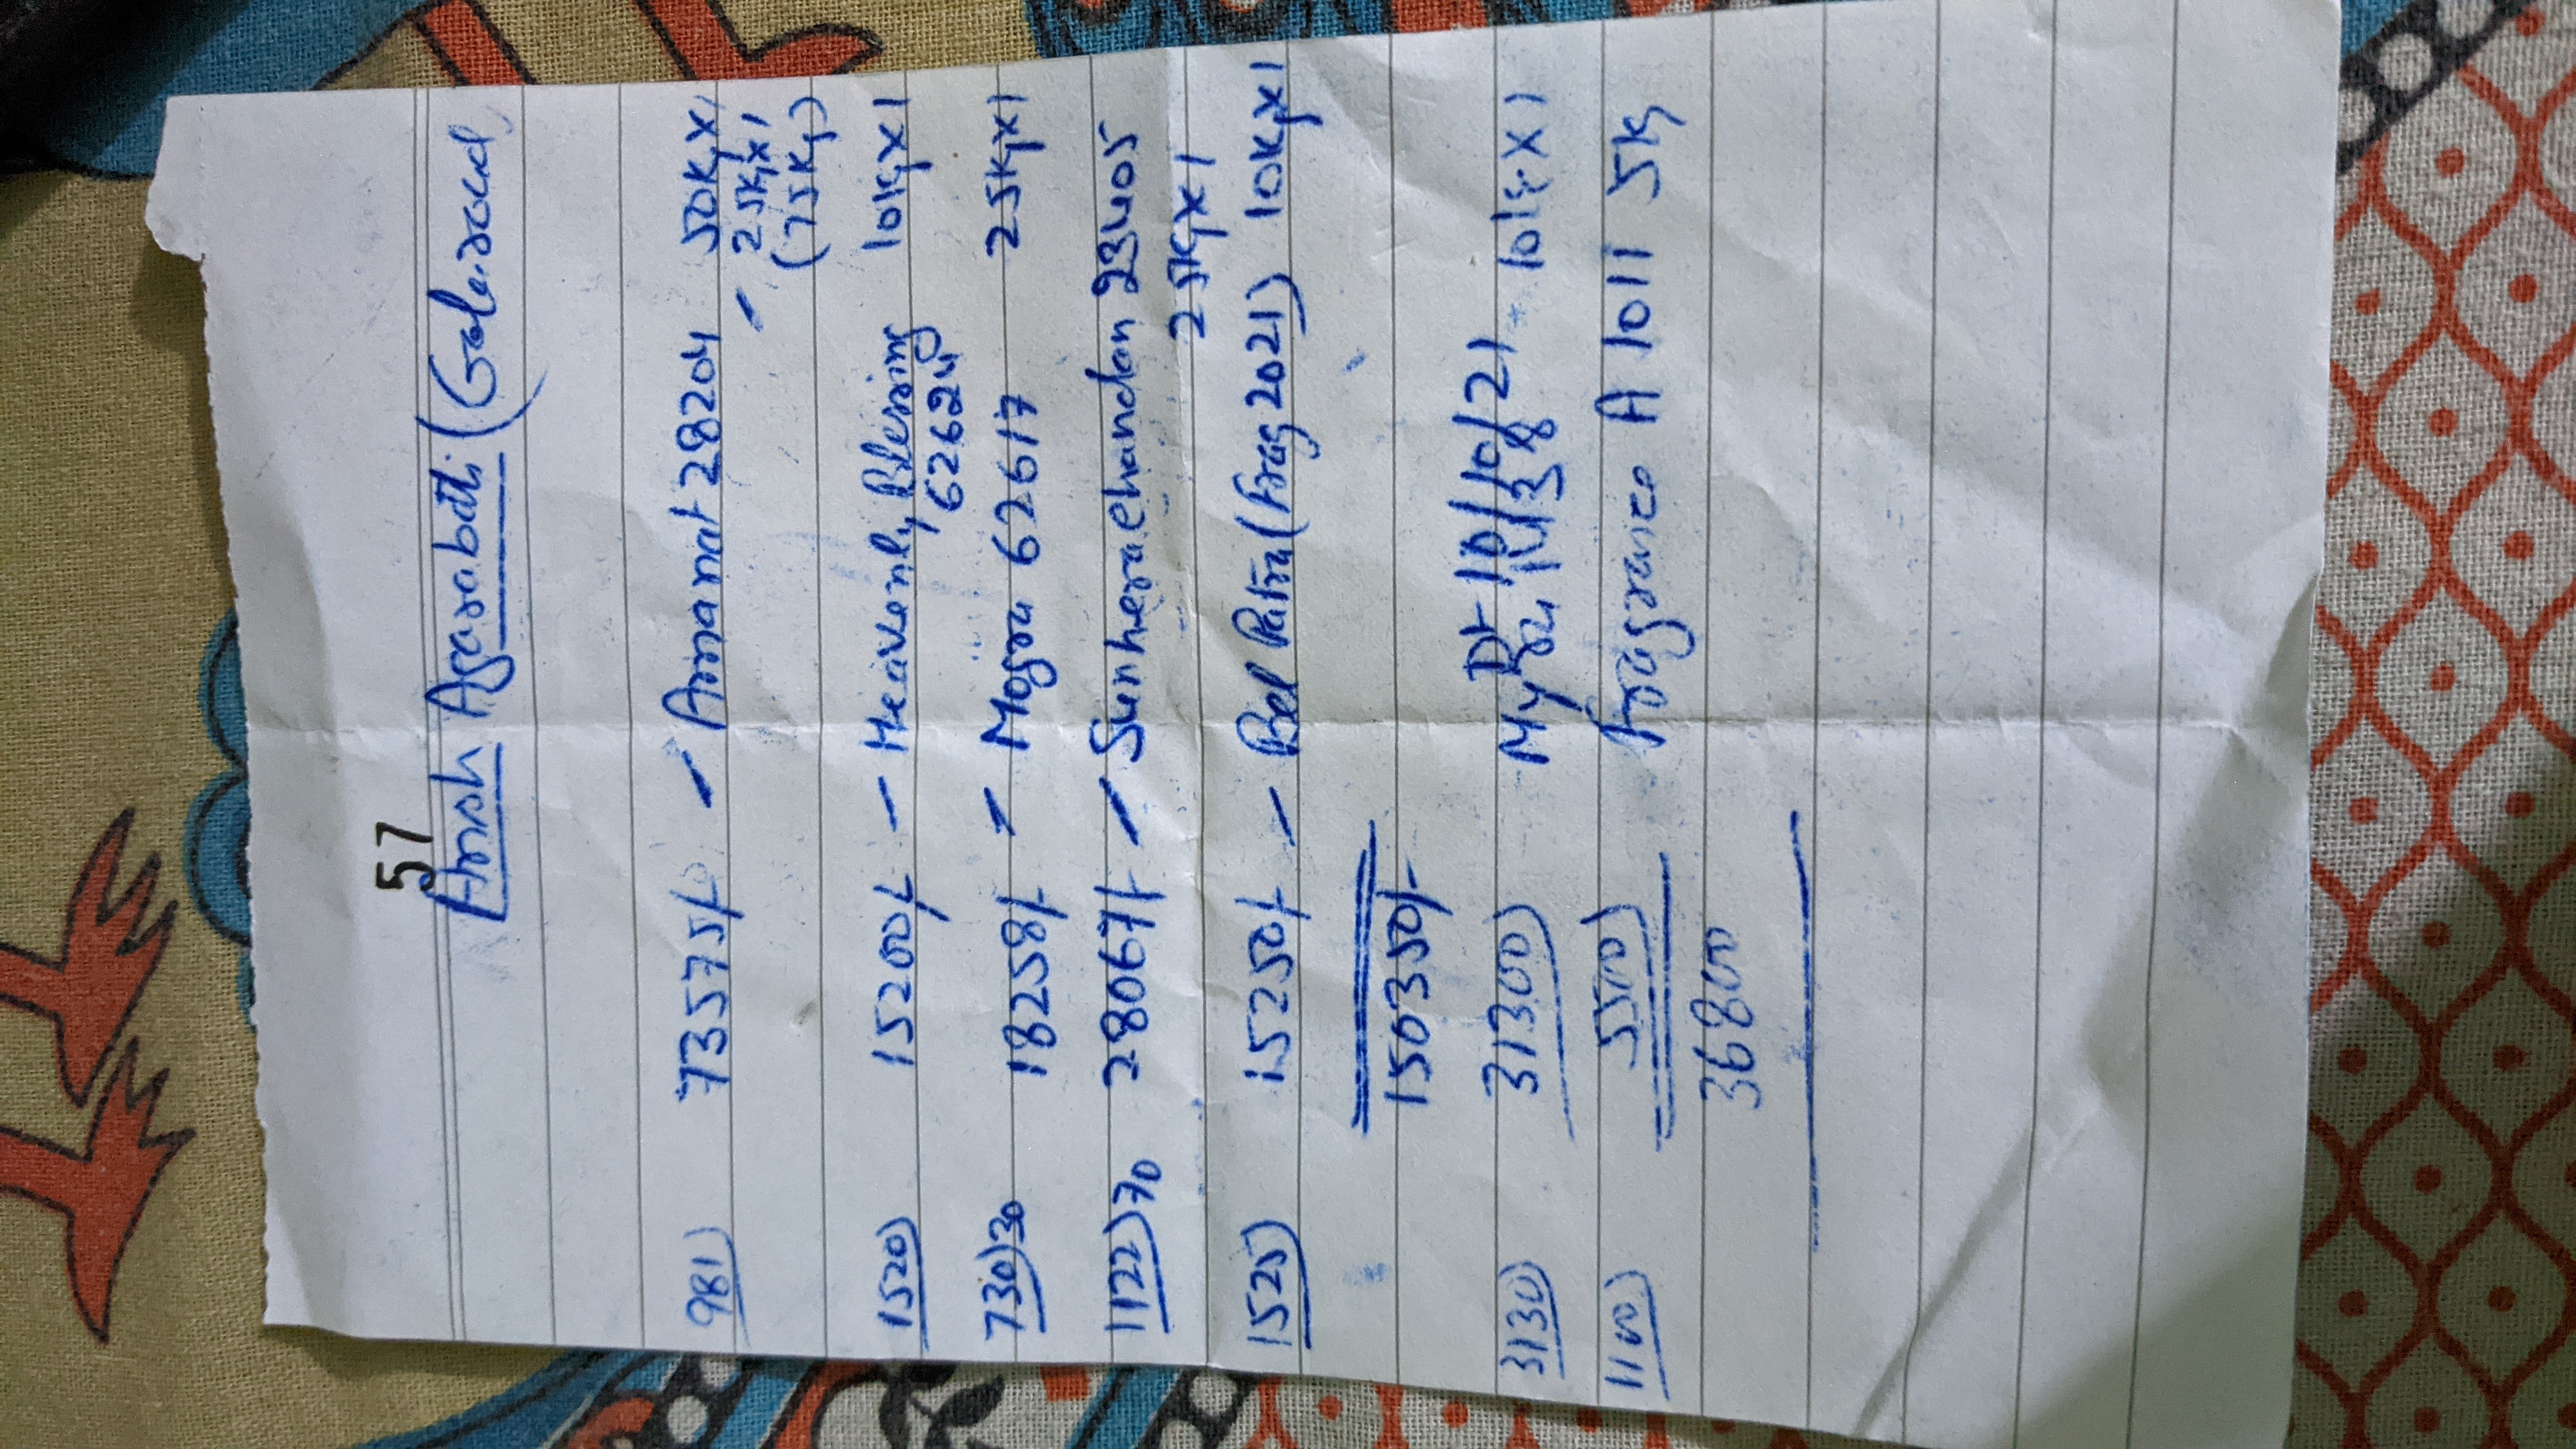 57
Anish Agarabatti (
981) 73575/- - Amanat 28204 50Kgx1
- 25Kgx1
(75Kg)
1520) 15200/- - Heavenly Blessing 10Kgx1
62624
730)30 18258/- - Mogra 62617 25Kgx1
1122)70 28067/- - Sunhera Chandan 23405
25Kgx1
1525) 15250/- - Bel Patra (Frag 2021) 10Kgx1
150350/-
Dt 10/10/21
3130) 31300) 10KgX1
1100) 5500) Fragrance A 1011 5Kg
36800